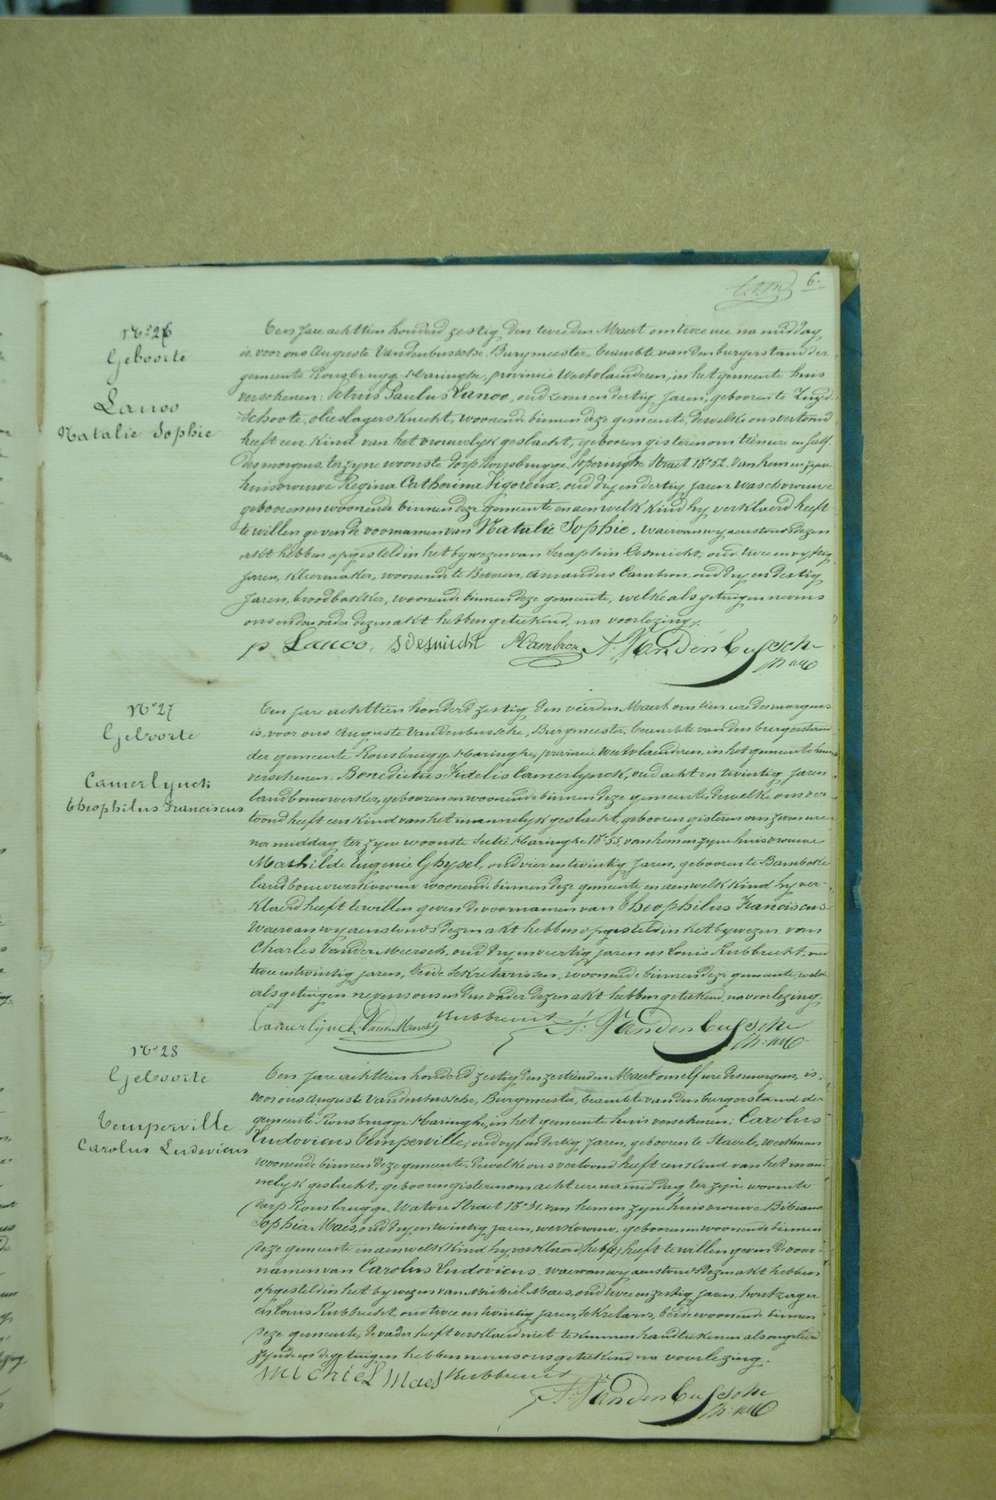 6.
N° 26
Geboorte
Lanoo
Natalie Sophie
Een jare achttien honderd zestig, den tweeden Maert om twee ure na middag
is voor ons Auguste Vandenbussche, Burgmeester, beambte van den burgerstand der
gemeente Rousbrugge-Haringhe, provincie Westvlaenderen, in het gemeente huis
verschenen: Petrus Paulus Lanoo, oud zeven en dertig jaren, geboren te Zuyd-
schoote, olieslagers knecht, woonende binnen deze gemeente, dewelke ons vertoond
heeft een kind van het vrouwelyk geslacht, geboren gisteren om tien ure en half
des morgens ter zyne woonste dorp Rousbrugge, Poperinghe Straet N° 52, van hem en zyne
huisvrouwe Regina Catharina Vigoreux, oud dry en dertig jaren
geboren en woonende binnen deze gemeente en aen welk kind hy verklaerd heeft
te willen geven de voornamen van Natalie Sophie. Waervan wy aenstonds dezen
akt hebben opgesteld in het bywezen van Seraphin Desmidt, oud twee en vyftig
jaren, kleermaker, woonende te Beveren, Amandus Cambron, oud dry en dertig
jaren, broodbakker, woonende binnen deze gemeente, welke als getuigen nevens
ons en den vader dezen akt hebben geteekend, na voorlezing.
p Lanoo. S Desmidt A Cambron A. Vandenbussche
N° 27
Geboorte
Camerlynck
Theophilus Franciscus
Een jare achttien honderd zestig, den vierden Maert om tien ure des morgens
is voor ons Auguste Vandenbussche, Burgmeester, beambte van den burgerstand
der gemeente Rousbrugge-Haringhe, provincie Westvlaenderen, in het gemeente huis
verschenen: Benedictus Fidelis Camerlynck, oud acht en twintig jaren
landbouwwerker, geboren en woonende binnen deze gemeente, dewelke ons ver-
toond heeft een kind van het mannelyk geslacht, geboren gisteren om zeven ure
na middag ter zyne woonste Haringhe N° 55, van hem en zyne huisvrouwe
Mathilde Eugenie Ghysel, oud vier en twintig jaren, geboren te Bambeke
landbouwwerkvrouw woonende binnen deze gemeente en aen welk kind hy ver-
klaerd heeft te willen geven de voornamen van Theophilus Franciscus.
Waervan wy aenstonds dezen akt hebben opgesteld in het bywezen van
Charles Vander Meersch, oud dry en veertig jaren en Louis Rubbrecht, oud
twee en twintig jaren, beide Sekretarissen, woonende binnen deze gemeente, welke
als getuigen nevens ons en den vader dezen akt hebben geteekend, na voorlezing.
Camerlynck C. VanderMeersch Rubbrecht A. Vandenbussche
N° 28
Geboorte
Temperville
Carolus Ludovicus
Een jare achttien honderd zestig, den zestienden Maert om elf ure des morgens, is
voor ons Auguste Vandenbussche, Burgmeester, beambte van den burgerstand der
gemeente Rousbrugge-Haringhe, in het gemeente huis verschenen: Carolus
Ludovicus Temperville, oud vyf en dertig jaren, geboren te Stavele, werkman
woonende binnen deze gemeente, dewelke ons vertoond heeft een kind van het man-
nelyk geslacht, geboren gisteren om acht ure na middag ter zyne woonste
dorp Rousbrugge, Watou Straet N° 31, van hem en zyne huisvrouwe Bibiana
Sophia Maes, oud dry en twintig jaren, werkvrouw, geboren en woonende binnen
deze gemeente en aen welk kind hy verklaerd heeft te willen geven de voor-
namen van Carolus Ludovicus. Waervan wy aenstonds dezen akt hebben
opgesteld in het bywezen van Michiel Maes, oud twee en zestig jaren, houtzager
en Louis Rubbrecht, oud twee en twintig jaren, Sekretaris, beide woonende binnen
deze gemeente, de vader heeft verklaerd niet te kunnen handteekenen als ongeleerd
zynde en de getuigen hebben nevens ons geteekend na voorlezing.
Michiel Maes Rubbrecht
A. Vandenbussche